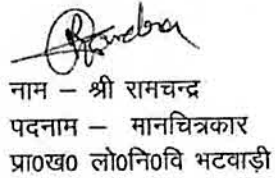 नाम – श्री रामचन्द्र
पदनाम – मानचित्रकार
प्रा०ख० लो०नि०वि भटवाड़ी